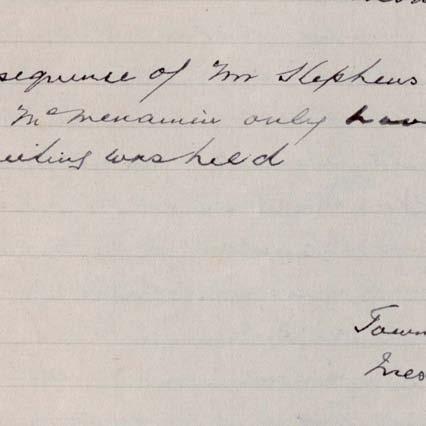 sequence of Mr Stephens
McMenamin only hav
eeting was held
Town